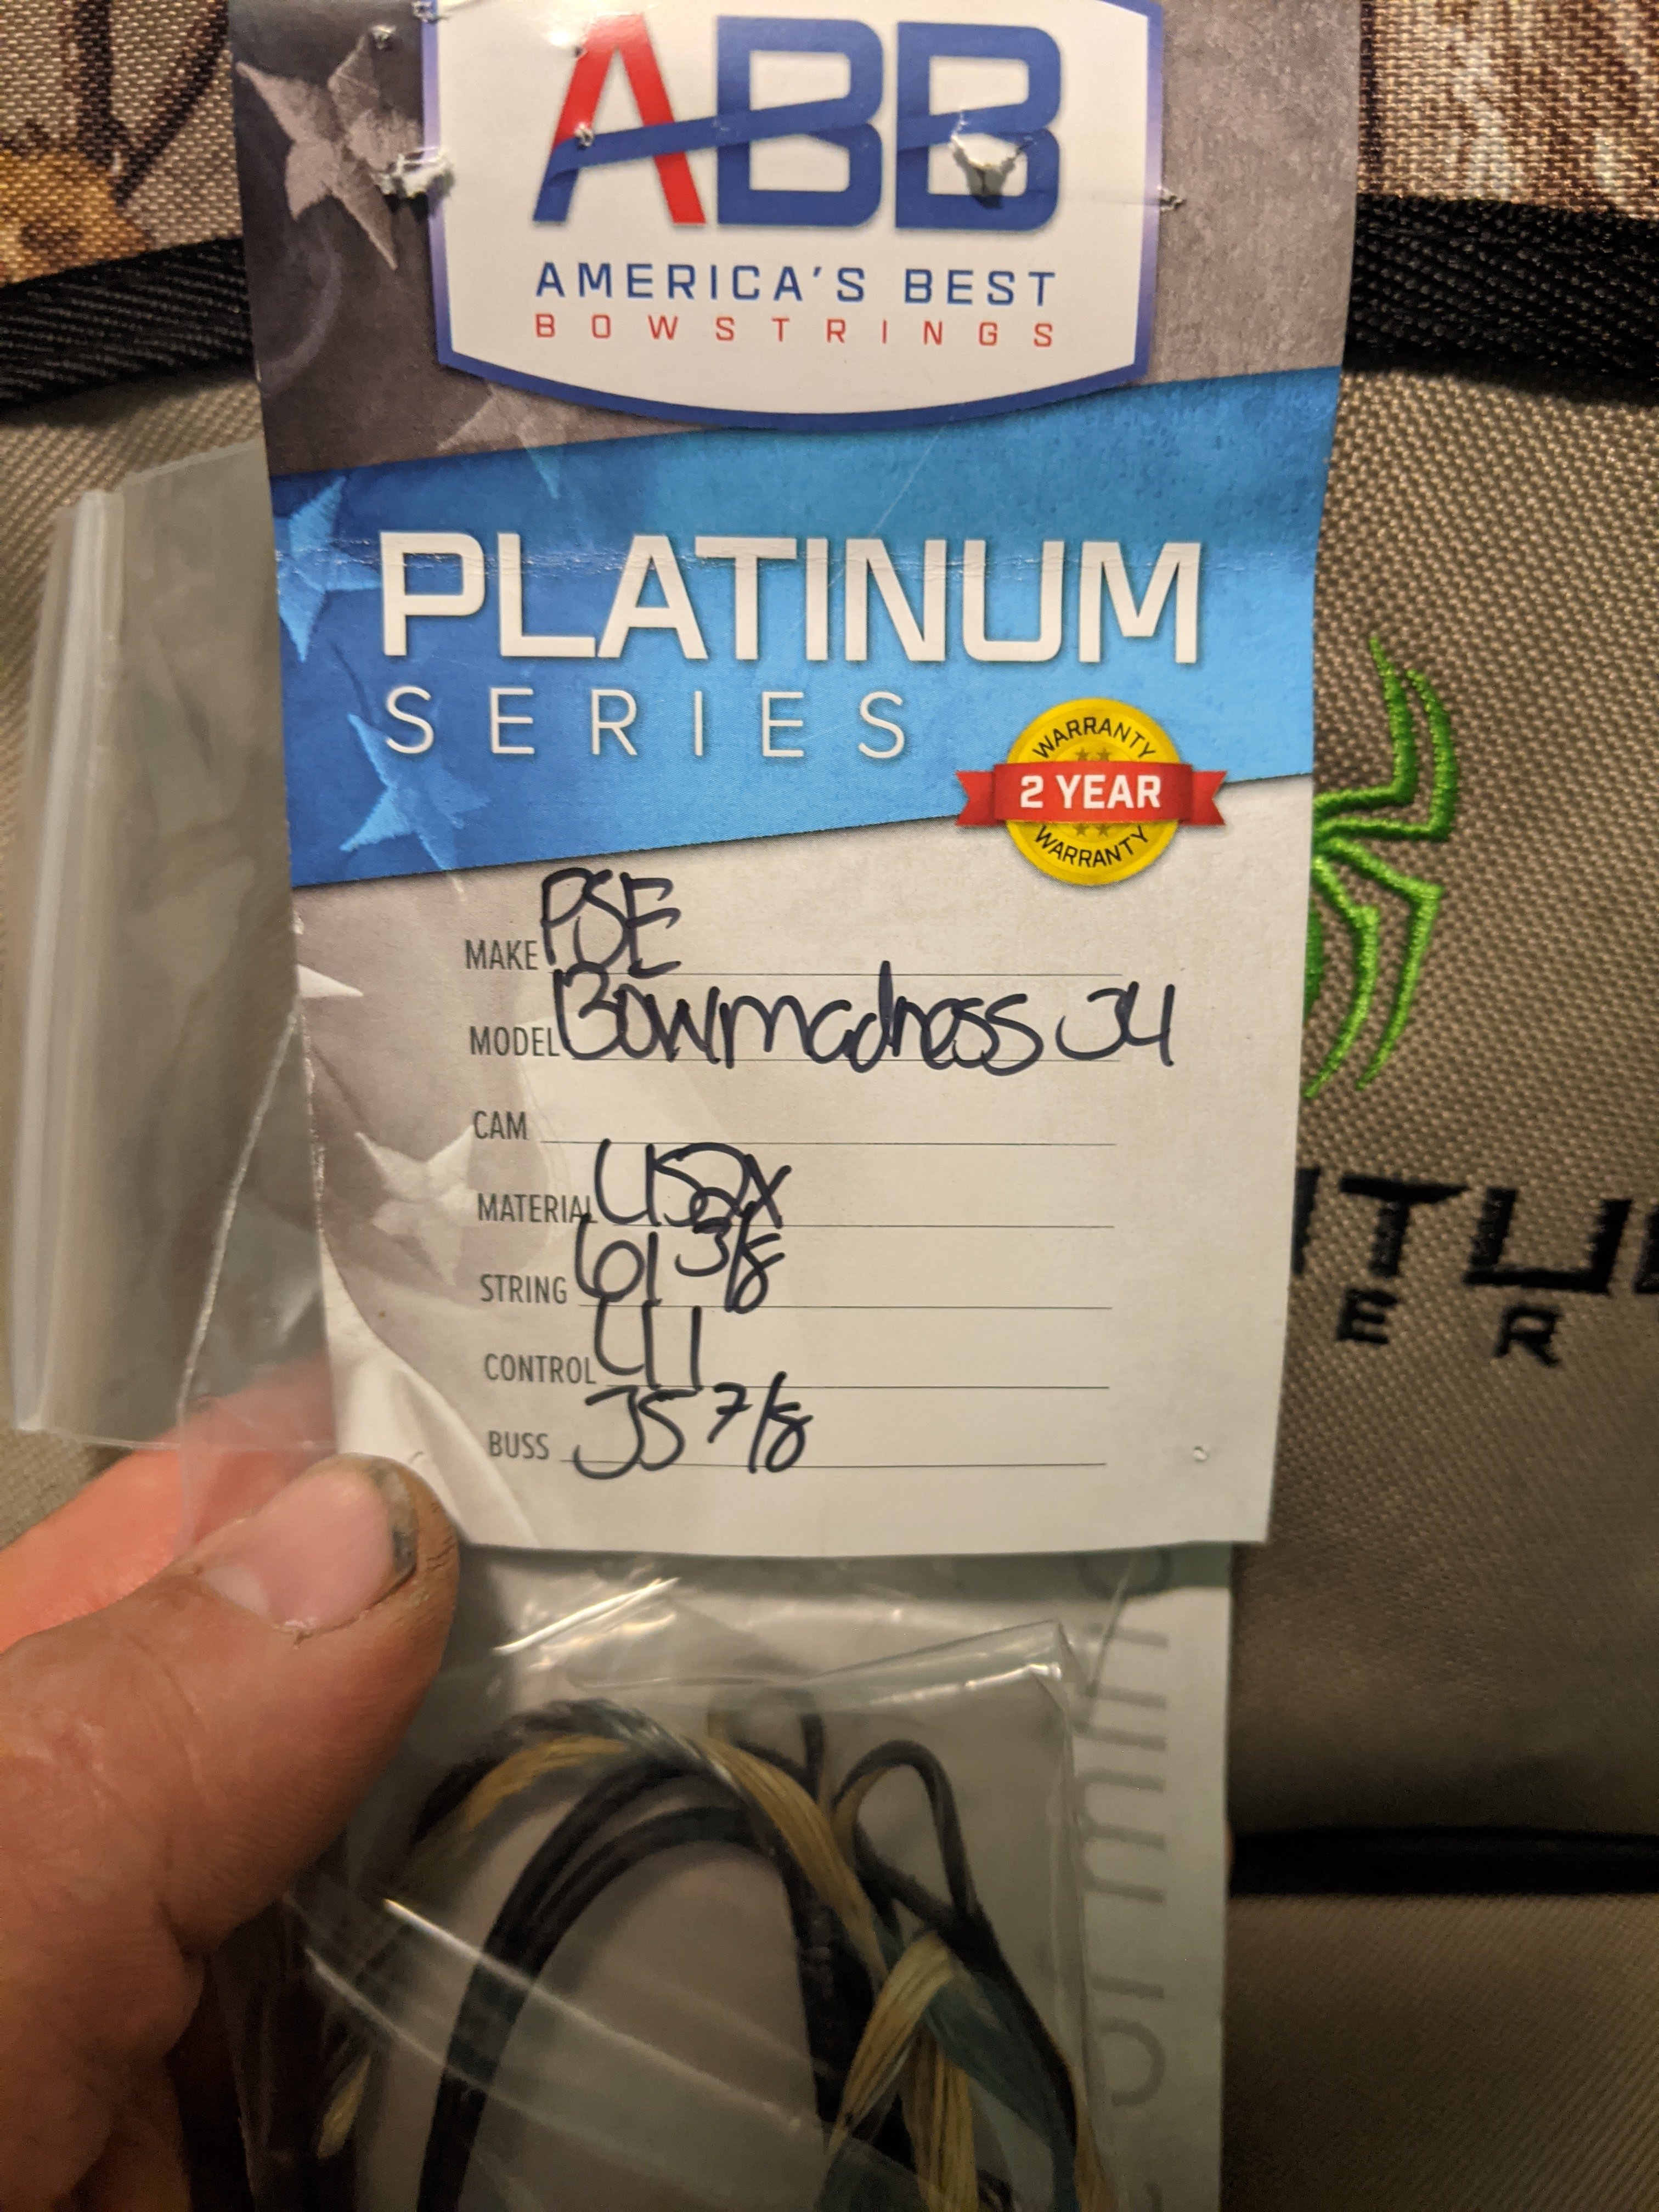 ABB
AMERICA'S BEST
BOWSTRINGS
PLATINUM
SERIES
WARRANTY
2 YEAR
WARRANTY
MAKE PSE
MODEL Bowmadness 34
CAM
MATERIAL 452x
STRING 61 3/8
CONTROL 41
BUSS 35 7/8